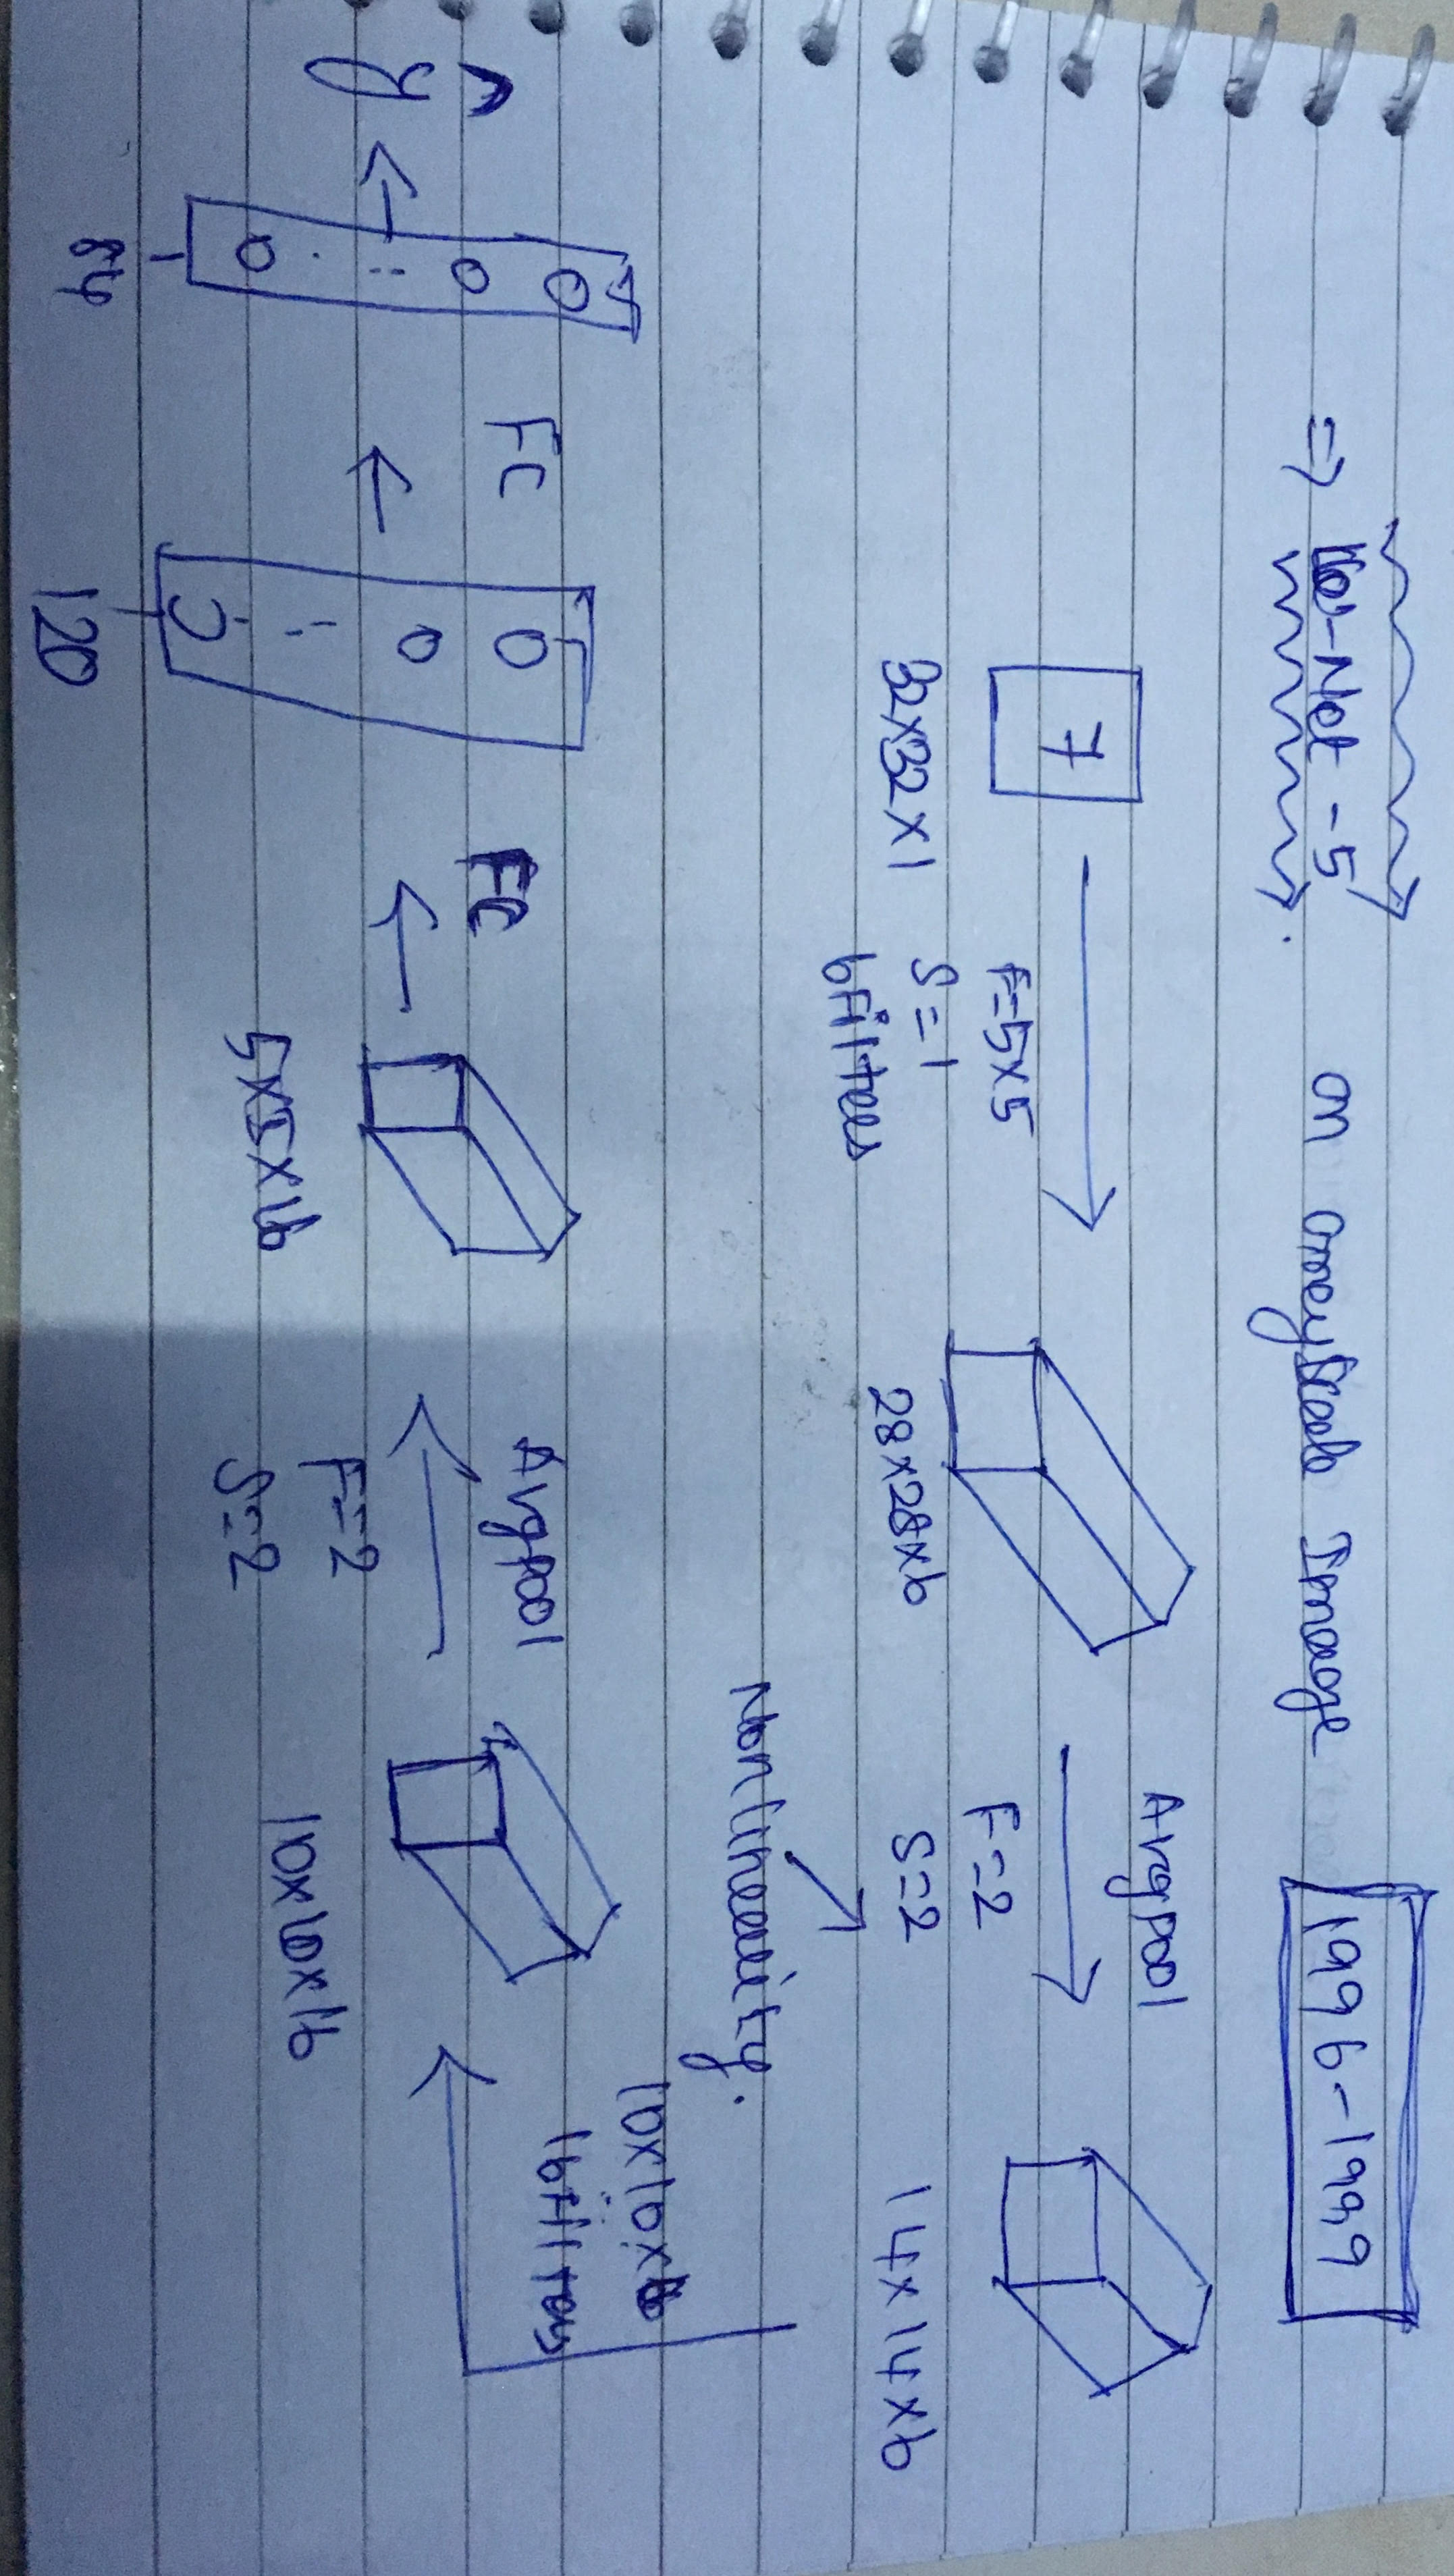 => Le-Net-5 on GreyScale Image 1996-1999
7
32x32x1
F=5x5
S=1
6Filters
28x28x6
Avgpool
F=2
S=2
Nonlinearity.
14x14x6
10x10x16
16Filters
10x10x16
Avgpool
F=2
S=2
5x5x16
FC
120
FC
84
ŷ